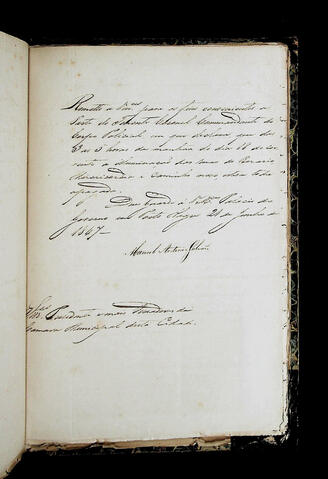 Remetto a Vmces para o fim conveniente a
Parte do Tenente Coronel Commandante do
Corpo Policial, em que declara que das
3 as 5 horas da manhaã do dia 18 do cor-
rente a illuminação das ruas do Rosario
e Caminho novo estava toda
apagada.
Deus Guarde a Vmces Palacio do
Governo em Porto Alegre 21 de Junho de
1847
Manuel Antonio Galvão
Presidente e mais Vereadores da
Camara Municipal desta Cidade.